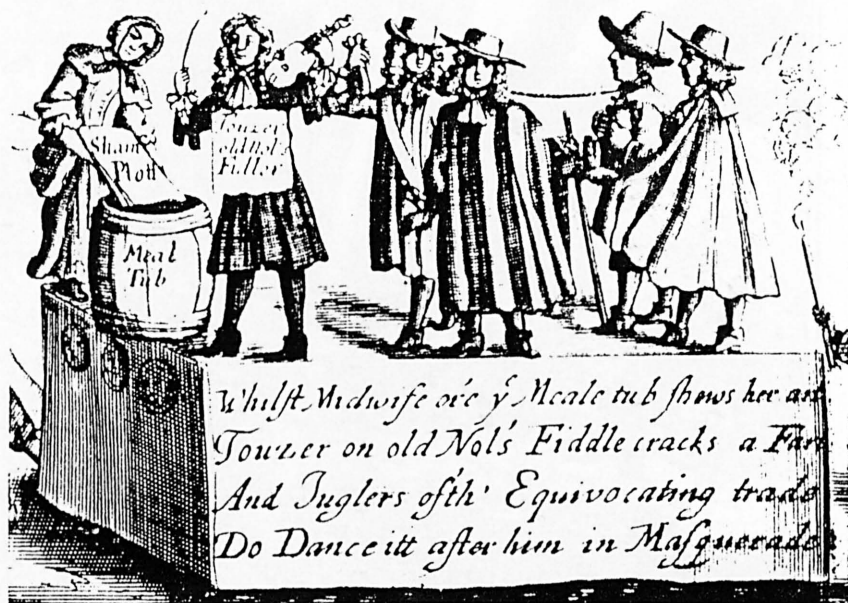 Sham
Plott
Meal
Tub
Touzer
old Nol's
Fidler
Whilst Midwife o're yᵉ Meale tub shews her art
Touzer on old Nol's Fiddle cracks a Fart
And Juglers of'th' Equivocating trade
Do Dance itt after him in Masquerade